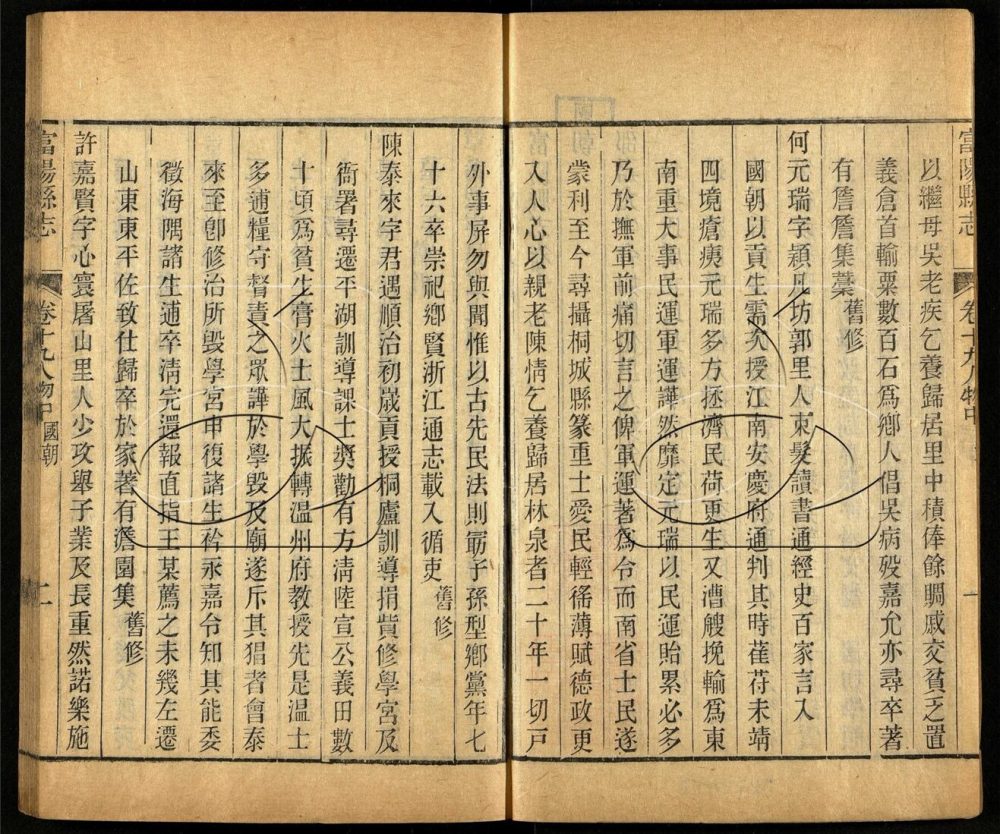 富陽縣志 卷十九 人物中 一
以繼母吳老疾乞養歸居里中積俸餘賙戚交貧乏置
義倉首輸粟數百石爲鄉人倡吳病歿嘉允亦尋卒著
有詹詹集藁 舊修
何元瑞字穎凡坊郭里人束髮讀書通經史百家言入
國朝以貢生需次授江南安慶府通判其時萑苻未靖
四境瘡痍元瑞多方拯濟民荷更生又漕艘挽輸爲東
南重大事民運軍運譁然靡定元瑞以民運貽累必多
乃於撫軍前痛切言之俾軍運著爲令而南省士民遂
蒙利至今尋攝桐城縣篆重士愛民輕徭薄賦德政更
入人心以親老陳情乞養歸居林泉者二十年一切戸
外事屏勿與聞惟以古先民法則勗子孫型鄉黨年七
十六卒崇祀鄉賢浙江通志載入循吏 舊修
陳泰來字君遇順治初歲貢授桐廬訓導捐貲修學宮及
衙署尋遷平湖訓導課士奬勸有方淸陸宣公義田數
十頃爲貧生膏火士風大振轉溫州府教授先是溫士
多逋糧守督責之眾譁於學毀及廟遂斥其猖者會泰
來至卽修治所毀學宮申復諸生衿永嘉令知其能委
徵海隅諸生逋卒淸完還報直指王某薦之未幾左遷
山東東平佐致仕歸卒於家著有澹園集 舊修
許嘉賢字心寰屠山里人少攻舉子業及長重然諾樂施
富陽縣志 卷十九 人物中 國朝 二